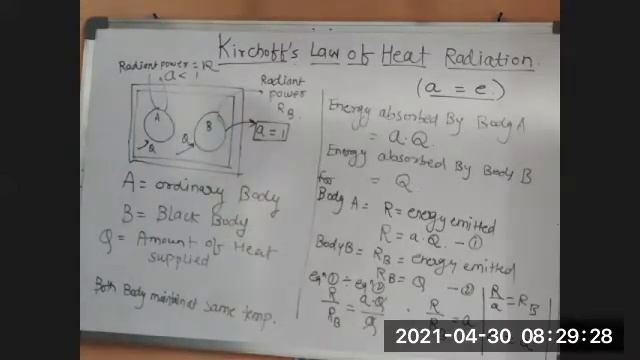 Kirchoff's Law of Heat Radiation.
(a = e)
Radiant power = R
a < 1
Radiant
power
R_B
A
B
Q
Q
a = 1
A = ordinary Body
B = Black Body
Q = Amount of Heat
supplied
Both Body maintain at same temp.
Energy absorbed By Body A
= a.Q.
Energy absorbed By Body B
= Q
For
Body A = R = energy emitted
R = a.Q. — ①
Body B = R_B = energy emitted
R_B = Q — ②
eqⁿ ① ÷ eqⁿ ②
R/R_B = a.Q/Q
= a
R/a = R_B
2021-04-30 08:29:28